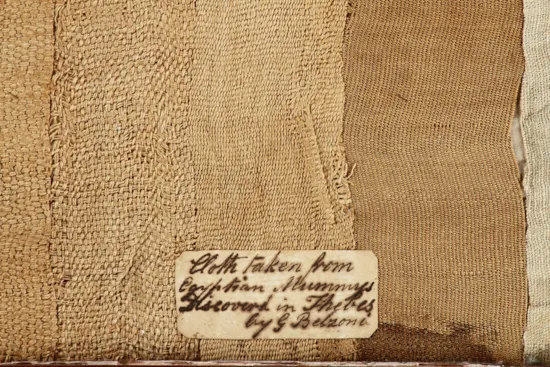 Cloth taken from
Egyptian Mummys
Discoverd in Thebes
by G Belzoni